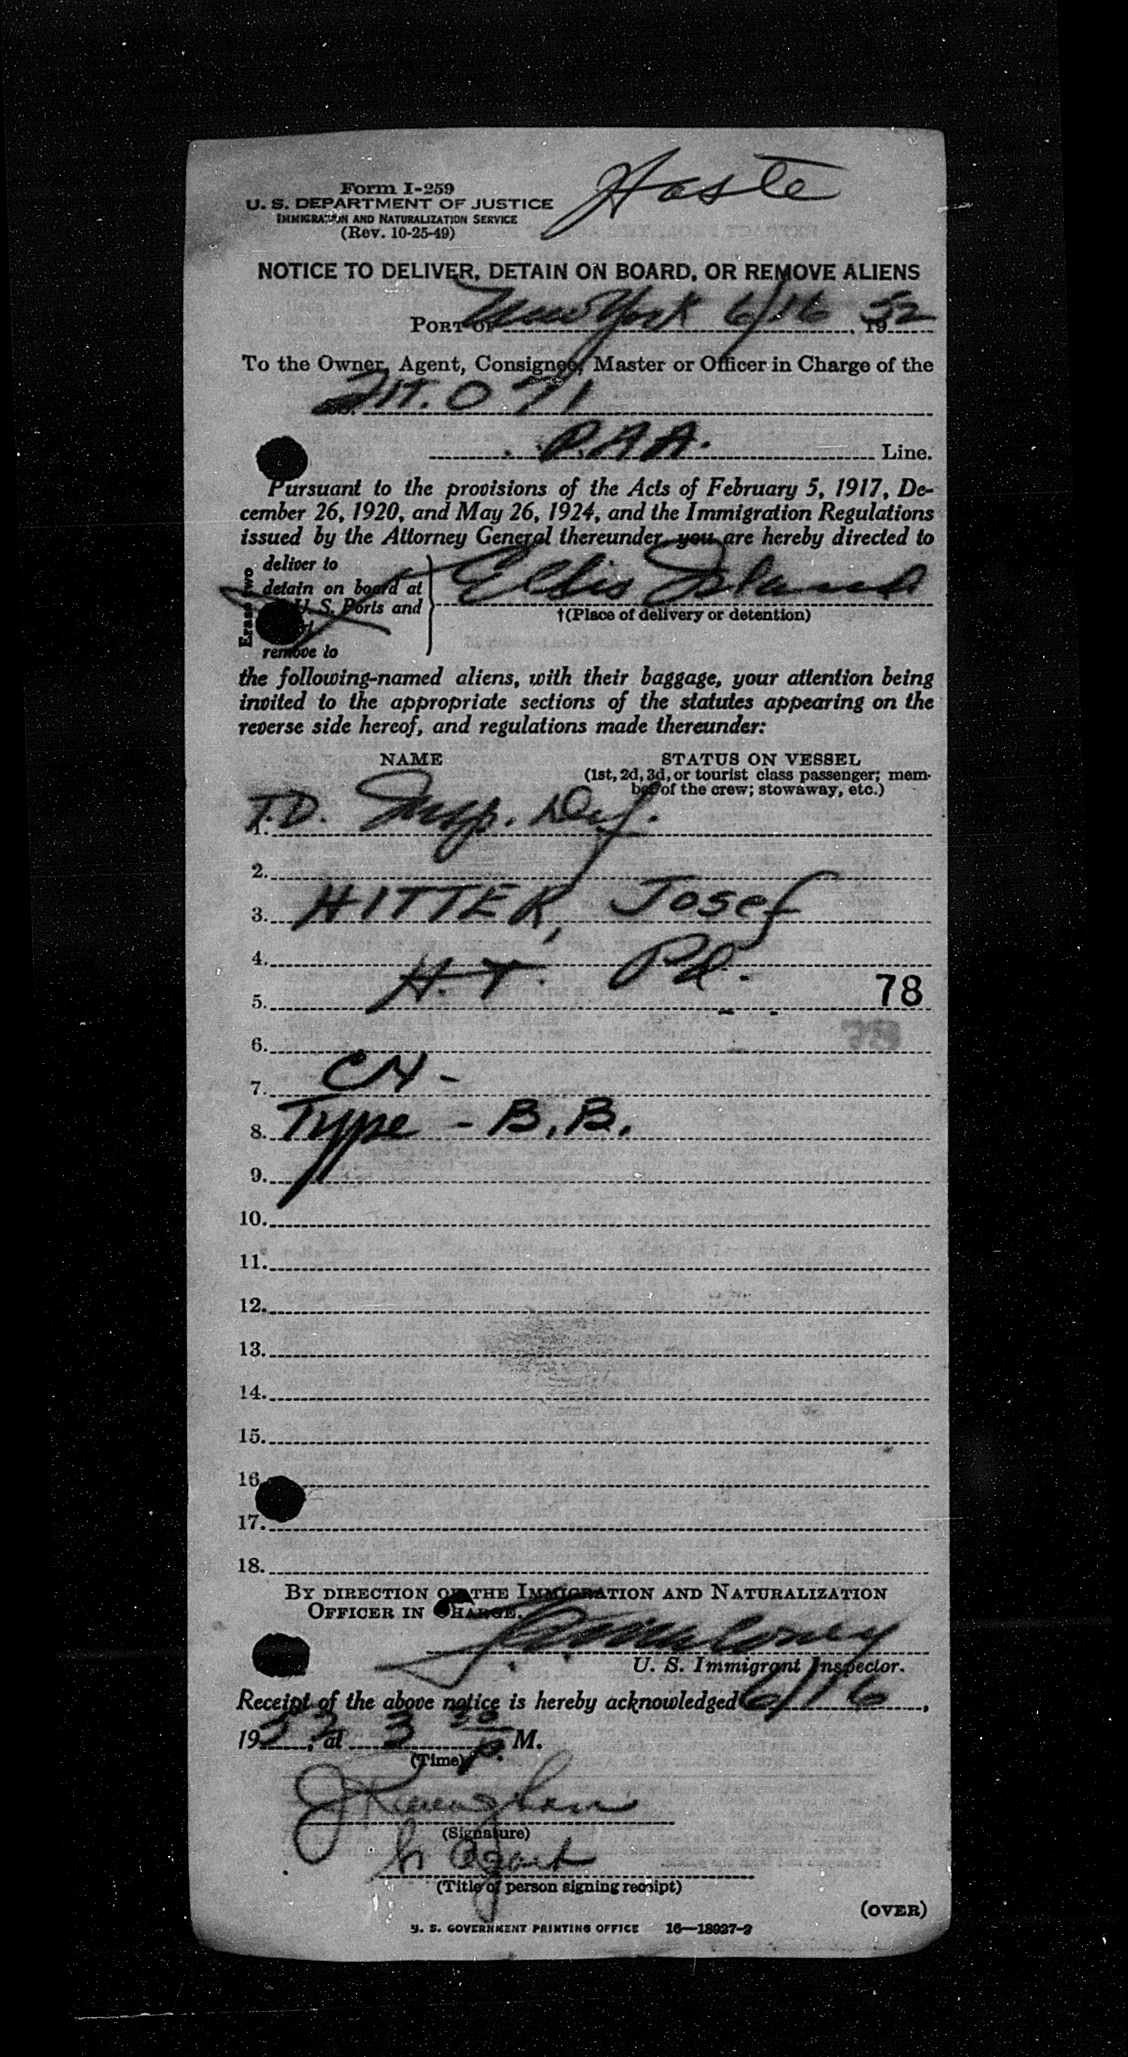 Haste
Form I-259
U. S. DEPARTMENT OF JUSTICE
IMMIGRATION AND NATURALIZATION SERVICE
(Rev. 10-25-49)
NOTICE TO DELIVER, DETAIN ON BOARD, OR REMOVE ALIENS
PORT OF New York 6/16, 1952
To the Owner, Agent, Consignee, Master or Officer in Charge of the
Flt. 071
P.A.A. Line.
Pursuant to the provisions of the Acts of February 5, 1917, De-
cember 26, 1920, and May 26, 1924, and the Immigration Regulations
issued by the Attorney General thereunder, you are hereby directed to
Erase two
deliver to
detain on board at
U. S. Ports and
remove to
Ellis Island
†(Place of delivery or detention)
the following-named aliens, with their baggage, your attention being
invited to the appropriate sections of the statutes appearing on the
reverse side hereof, and regulations made thereunder:
NAME STATUS ON VESSEL
(1st, 2d, 3d, or tourist class passenger; mem-
ber of the crew; stowaway, etc.)
1. T.D. Insp. Def.
2.
3. HITTER, Josef
4.
5. H.T. Pd. 78
6.
7.
8. Type - B.B.
9.
10.
11.
12.
13.
14.
15.
16.
17.
18.
BY DIRECTION OF THE IMMIGRATION AND NATURALIZATION
OFFICER IN CHARGE.
U. S. Immigrant Inspector.
Receipt of the above notice is hereby acknowledged 6/16,
1952, at 3 30 P. M.
(Time)
(Signature)
Agent
(Title of person signing receipt)
(OVER)
U. S. GOVERNMENT PRINTING OFFICE 16—18927-2